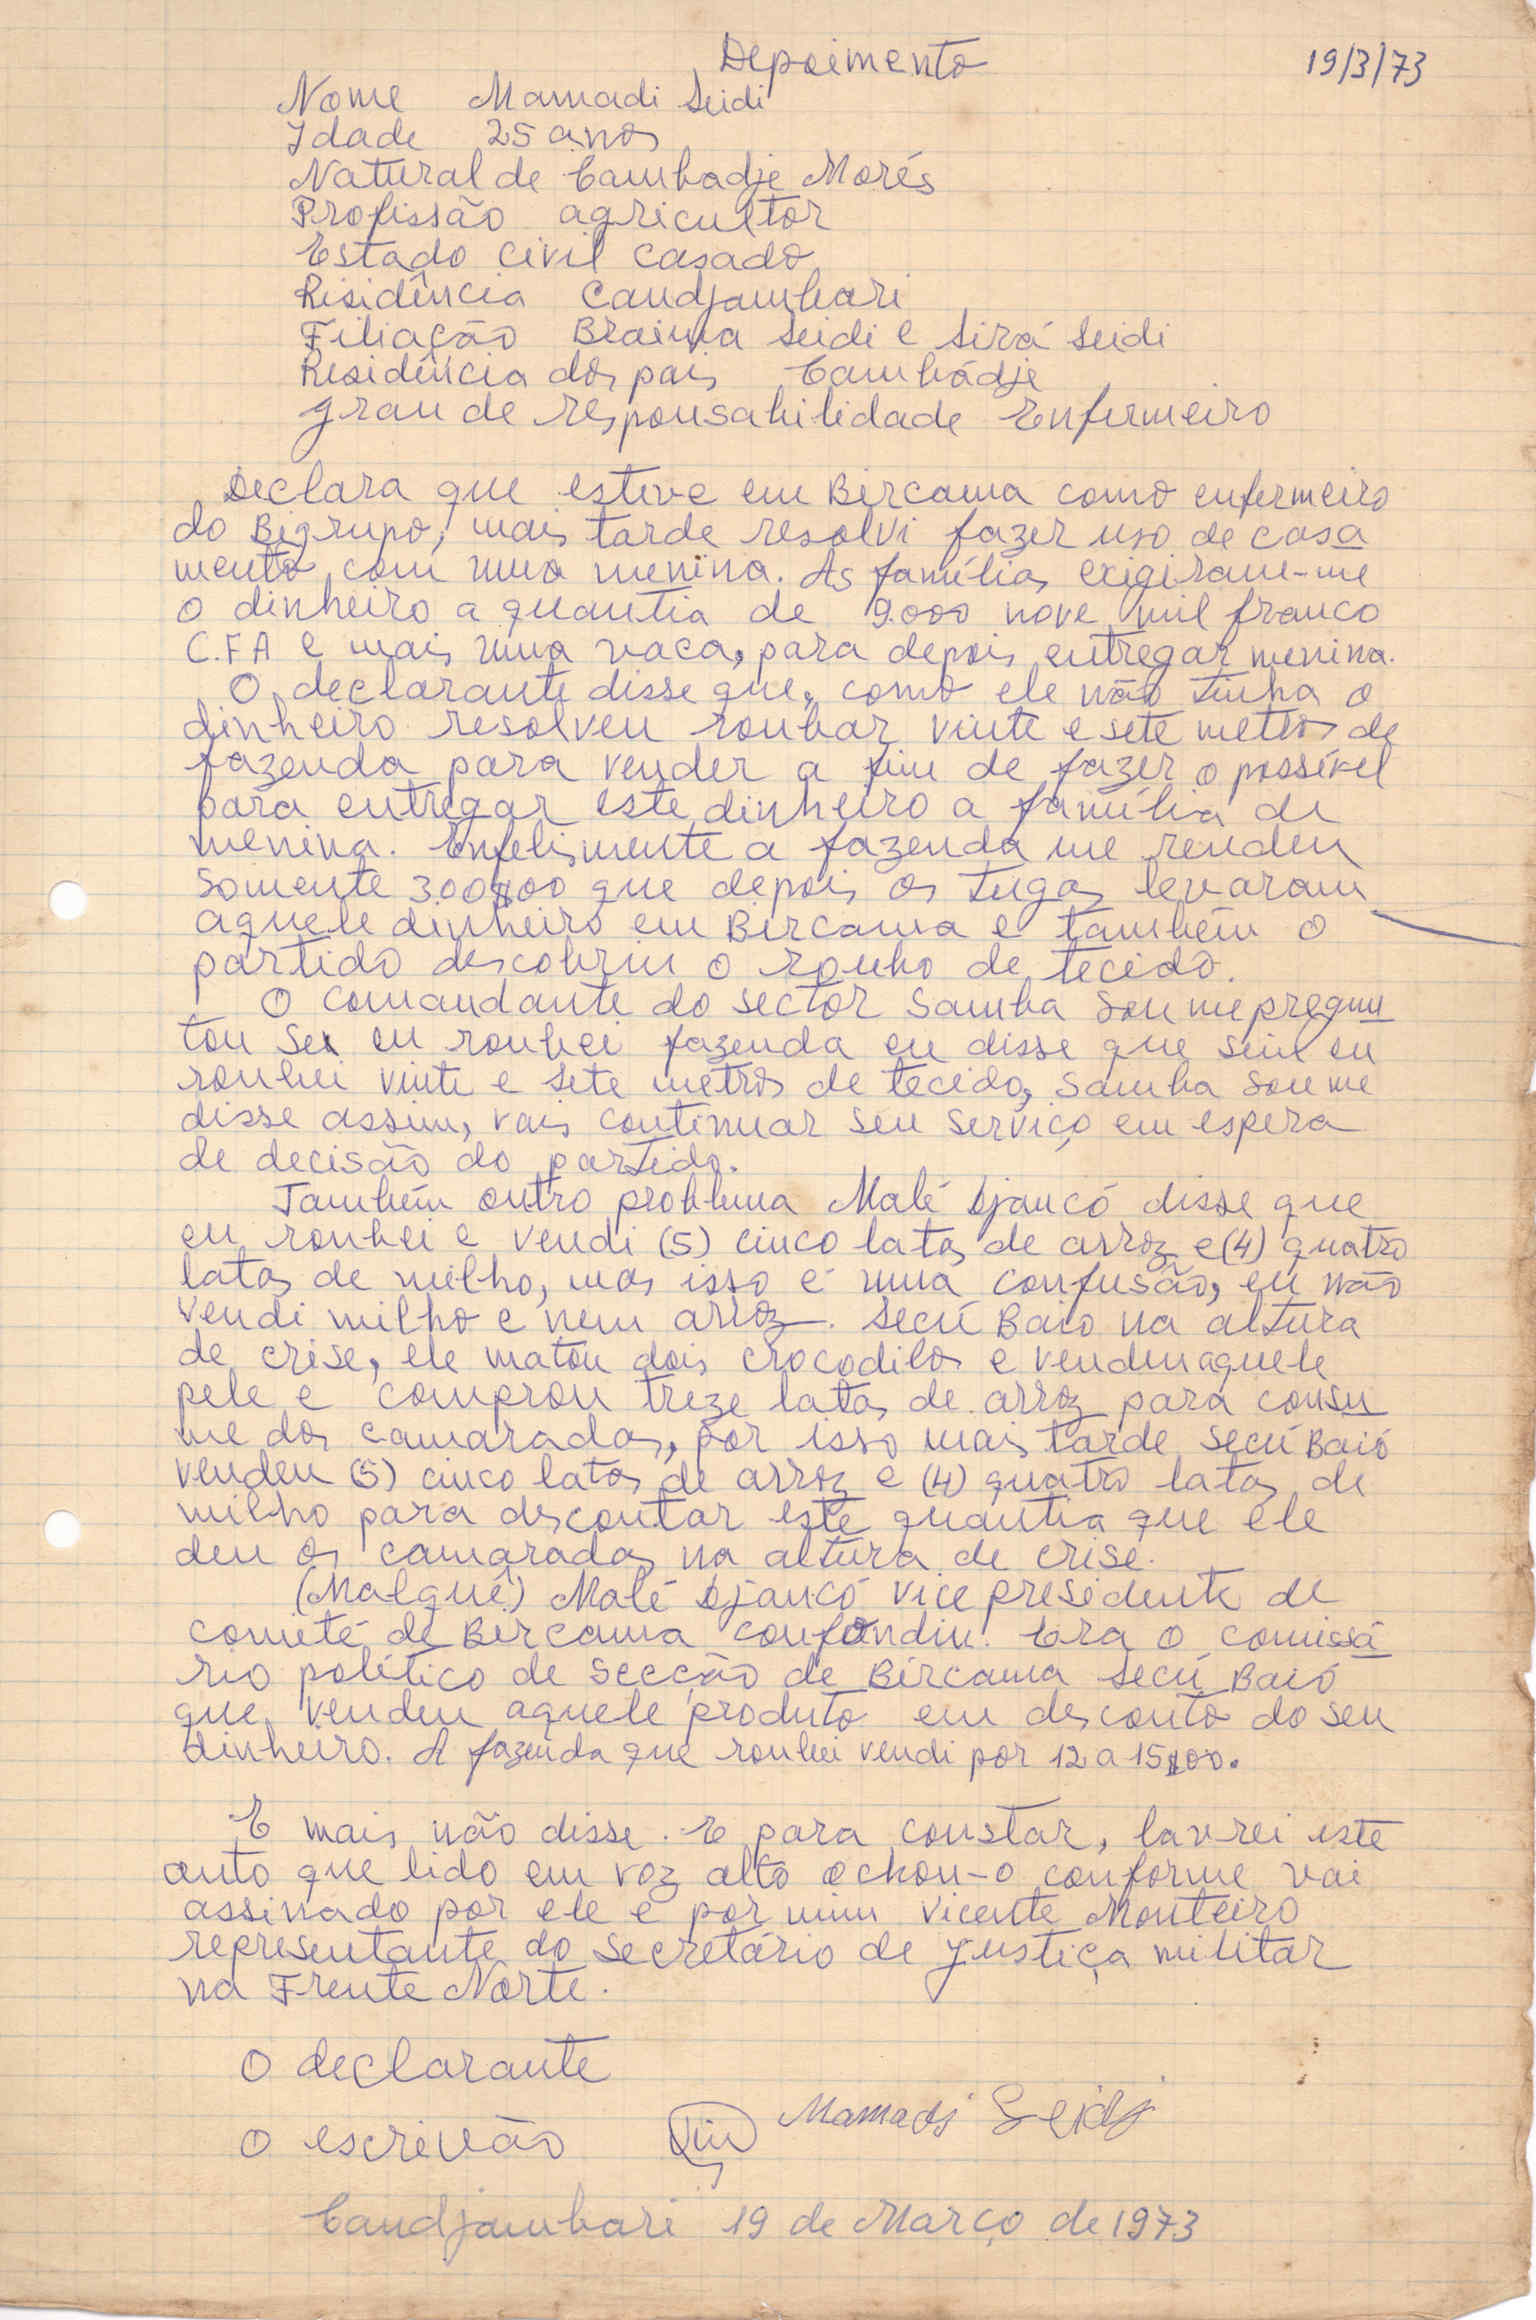 Depoimento 19/3/73
Nome Mamadi Seidi
Idade 25 anos
Natural de Cambadje Morés
Profissão agricultor
Estado civil casado
Risidência Candjambari
Filiação Braima Seidi e Sirá Seidi
Residência dos pais Cambádje
grau de responsabilidade Enfermeiro
Declara que esteve em Bircama como enfermeiro
do Bigrupo, mais tarde resolvi fazer uso de casa
mento com uma menina. As famílias exigiram-me
o dinheiro a quantia de 9.000 nove mil franco
C.F.A e mais uma vaca, para depois entregar menina.
O declarante disse que, como ele não tinha o
dinheiro resolveu roubar vinte e sete metros de
fazenda para vender a fim de fazer o possível
para entregar este dinheiro a família de
menina. Enfelismente a fazenda me rendeu
somente 300$00 que depois os tugas levaram
aquele dinheiro em Bircama e também o
partido descobriu o roubo de tecido.
O comandante do sector Samba Sou me pregun
tou se eu roubei fazenda eu disse que sim eu
roubei vinte e sete metros de tecido, Samba Sou me
disse assim, vais continuar seu serviço em espera
de decisão do partido.
Também outro problema Malé Djancó disse que
eu roubei e vendi (5) cinco latas de arroz e (4) quatro
latas de milho, mas isso é uma confusão, eu não
vendi milho e nem arroz. Secú Baio na altura
de crise, ele matou dois crocodilos e vendeu aquele
pele e comprou treze latas de arroz para consu
me dos camaradas, por isso mais tarde Secú Baió
vendeu (5) cinco latas de arroz e (4) quatro latas de
milho para descontar este quantia que ele
deu os camaradas na altura de crise.
(Malquê) Malé Djancó vice presidente de
comité de Bircama confundiu. Era o comissá
rio político de secção de Bircama Secú Baió
que vendeu aquele produto em desconto do seu
dinheiro. A fazenda que roubei vendi por 12 a 15$00.
E mais não disse. E para constar, lavrei este
auto que lido em voz alta achou-o conforme vai
assinado por ele e por mim Vicente Monteiro
representante do Secretário de Justiça militar
na Frente Norte.
O declarante
Mamadi Seidi
O escrivão
Candjambari 19 de Março de 1973